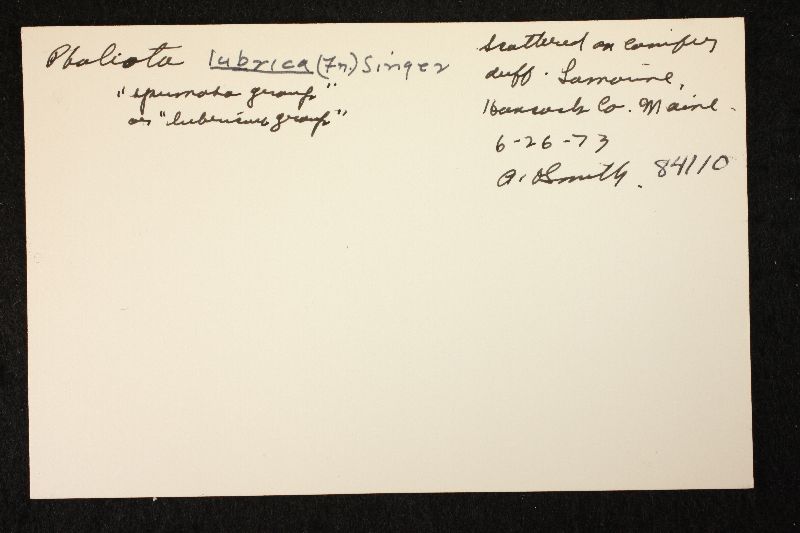 Pholiota lubrica (Fr) Singer
"spumosa group"
or "lubricus group"
Scattered on conifer
duff. Lamoine,
Hancock Co. Maine.
6-26-73
A. Smith. 84110